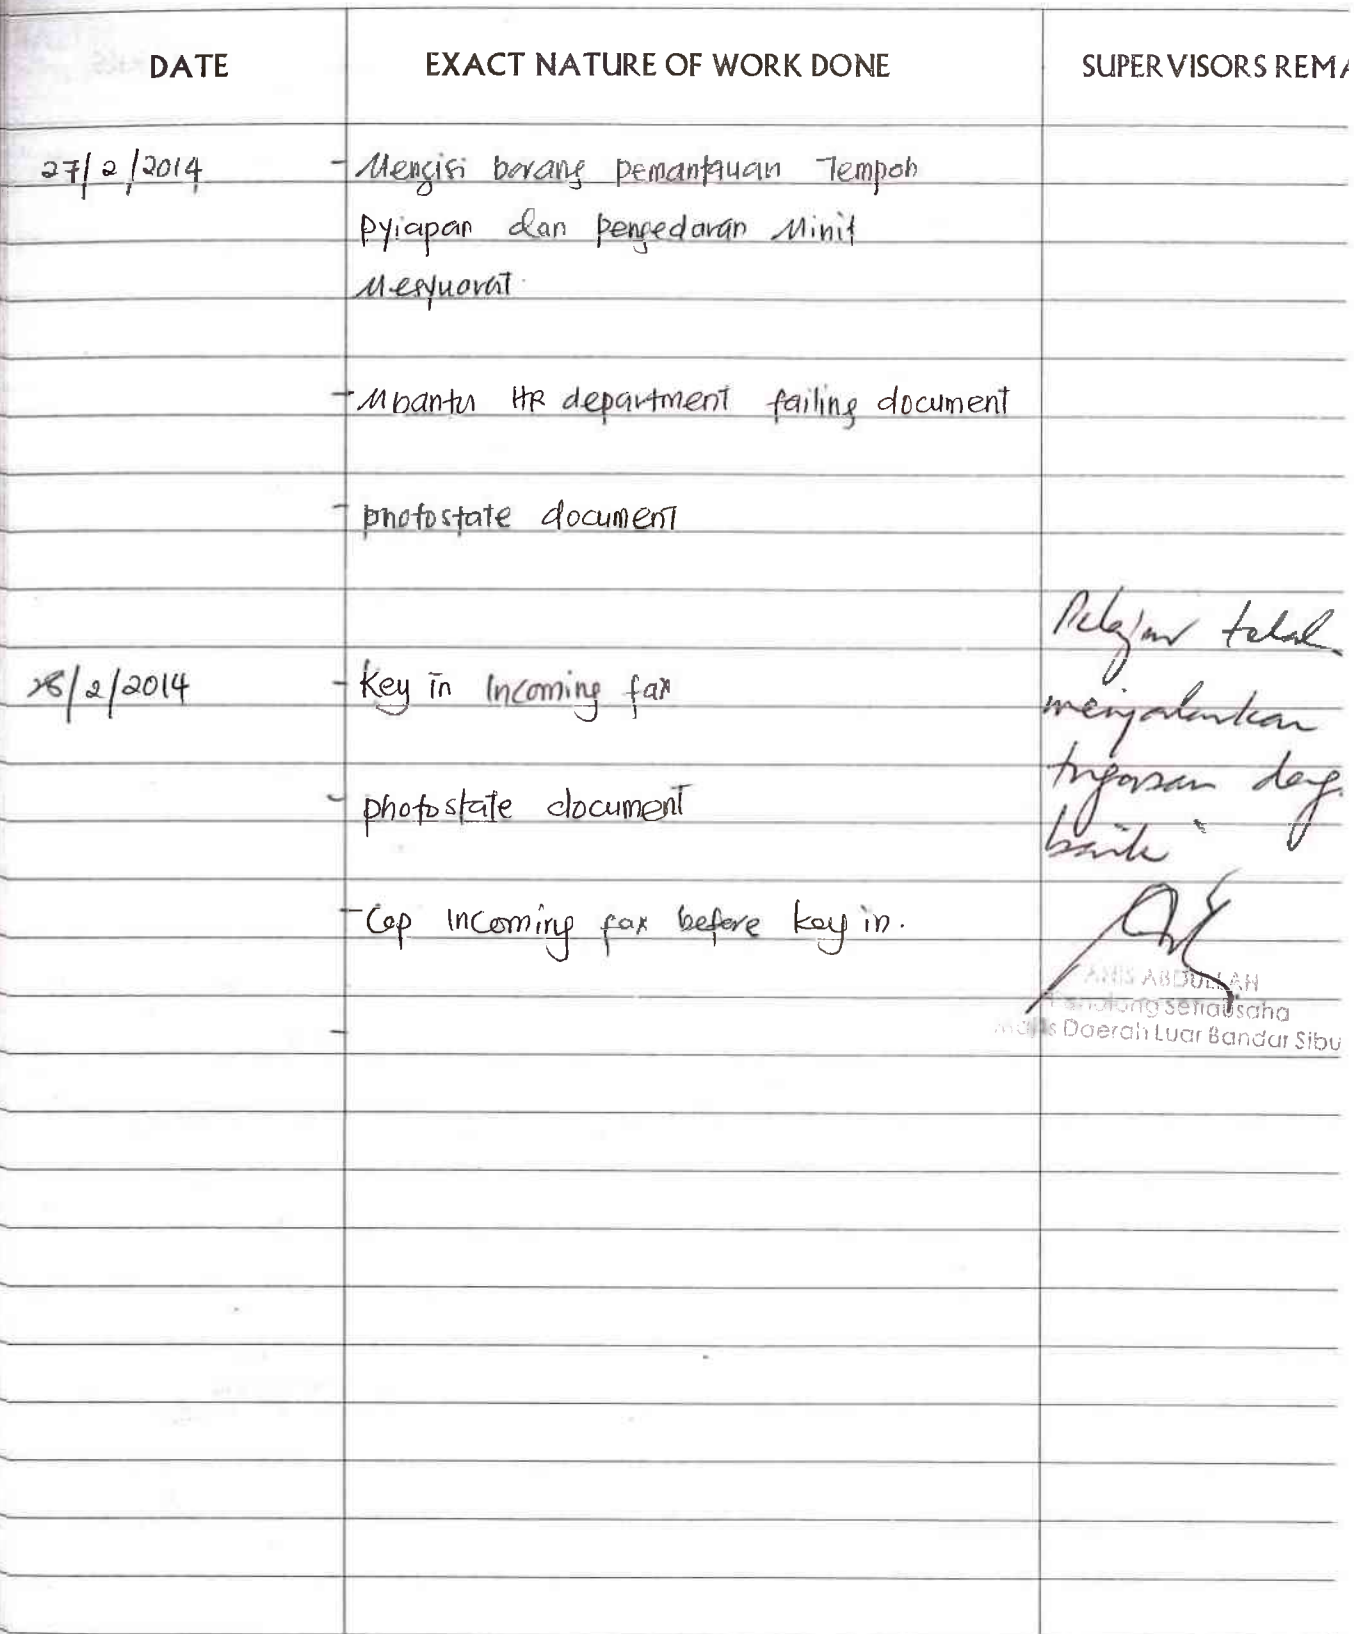 DATE EXACT NATURE OF WORK DONE SUPERVISORS REMA
27/2/2014 - Mengisi borang pemantauan Tempoh
pyiapan dan pengedaran Minit
Mesyuarat.
- Mbantu HR department failing document
- photostate document
Pelajar telah
28/2/2014 - key in Incoming fax
menjalankan
tugasan deng.
- photostate document
baik
- Cop Incoming fax before key in.
ANIS ABDULLAH
Penolong Setiausaha
Majlis Daerah Luar Bandar Sibu
-